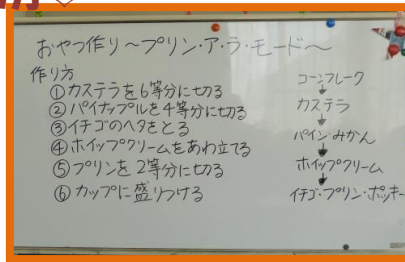 おやつ作り～プリン・ア・ラ・モード～
作り方
①カステラを6等分に切る
②パイナップルを4等分に切る
③イチゴのヘタをとる
④ホイップクリームをあわ立てる
⑤プリンを2等分に切る
⑥カップに盛りつける
コーンフレーク
↓
カステラ
↓
パイン・みかん
↓
ホイップクリーム
↓
イチゴ・プリン・ポッキー